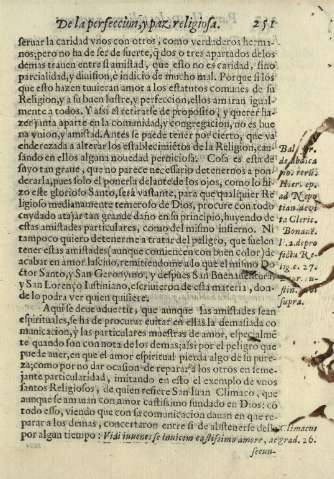 De la perfeccion, y paz religiosa. 251
seruar la caridad vnos con otros, como verdaderos herma-
nos; pero no ha de ser de suerte, q̃ dos o tres apartados de los
demas trauen entre si amistad, que esto no es caridad, sino
parcialidad, y diuision, è indicio de mucho mal. Porque si los
que esto hazen tuuieran amor a los estatutos comunes de su
Religion, y a su buen lustre, y perfeccion, ellos amaran igual-
mente a todos. Y assi el retirarse de proposito, y querer ha-
zer junta aparte en la comunidad, y congregacion, no es bue
na vnion, y amistad. Antes se puede tener por cierto, que va
enderezada a alterar los establecimiẽtos de la Religion, cau
sando en ellos alguna nouedad perniciosa. Cosa es esta de
suyo tan graue, que no parece necessario detenernos a pon
derarla, pues solo el ponerla delante de los ojos, como lo hi-
zo este glorioso Santo, serà vastante, para que qualquier Re
ligioso medianamente temeroso de Dios, procure con todo
cuydado atajar tan grande daño en su principio, huyendo de
estas amistades particulares, como del mismo infierno. Ni
tampoco quiero detenerme a tratar del peligro, que suelen
tener estas amistades (aunque comiencen con buen color) de
acabar en amor lasciuo, remitiendome a lo q̃ el mismo Do
ctor Santo, y San Geronymo, y despues San Buenauentura,
y San Lorenço Iustiniano, escriuieron de esta materia, don-
de lo podra ver quien quisiere.
Aqui se deue aduertir, que aunque las amistades sean
espirituales, se ha de procurar euitar en ellas la demasiada co
municacion, y las particulares muestras de amor, especialmẽ
te quando son con nota de los demas; assi por el peligro que
puede auer, en que el amor espiritual pierda algo de su pure-
za; como por no dar ocasion de reparar a los otros en seme-
jante particularidad, imitando en esto el exemplo de vnos
santos Religiosos, de quien refiere San Iuan Climaco, que
aunque se amauan con amor castissimo fundado en Dios: cõ
todo esso, viendo que con su comunicacion dauan en que re-
parar a los demas, concertaron entre si de abstenerse della
por algun tiempo: Vidi iuuenes se inuicem castissimo amore,
secun-
Hier. ep.
ad Nepo
tia. de vi
ta Cleric.
Bonauẽt.
supra.
grad. 26.